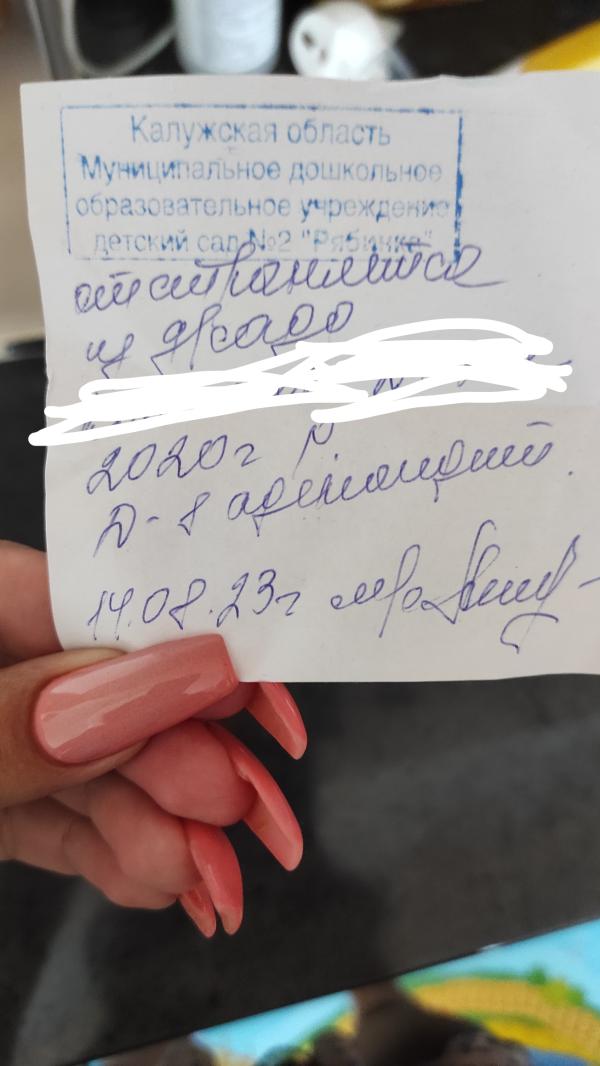 Калужская область
Муниципальное дошкольное
образовательное учреждение
детский сад №2 "Рябинка"
отстраняется
из д/сада
2020г р.
D-s аденоидит.
14.08.23г